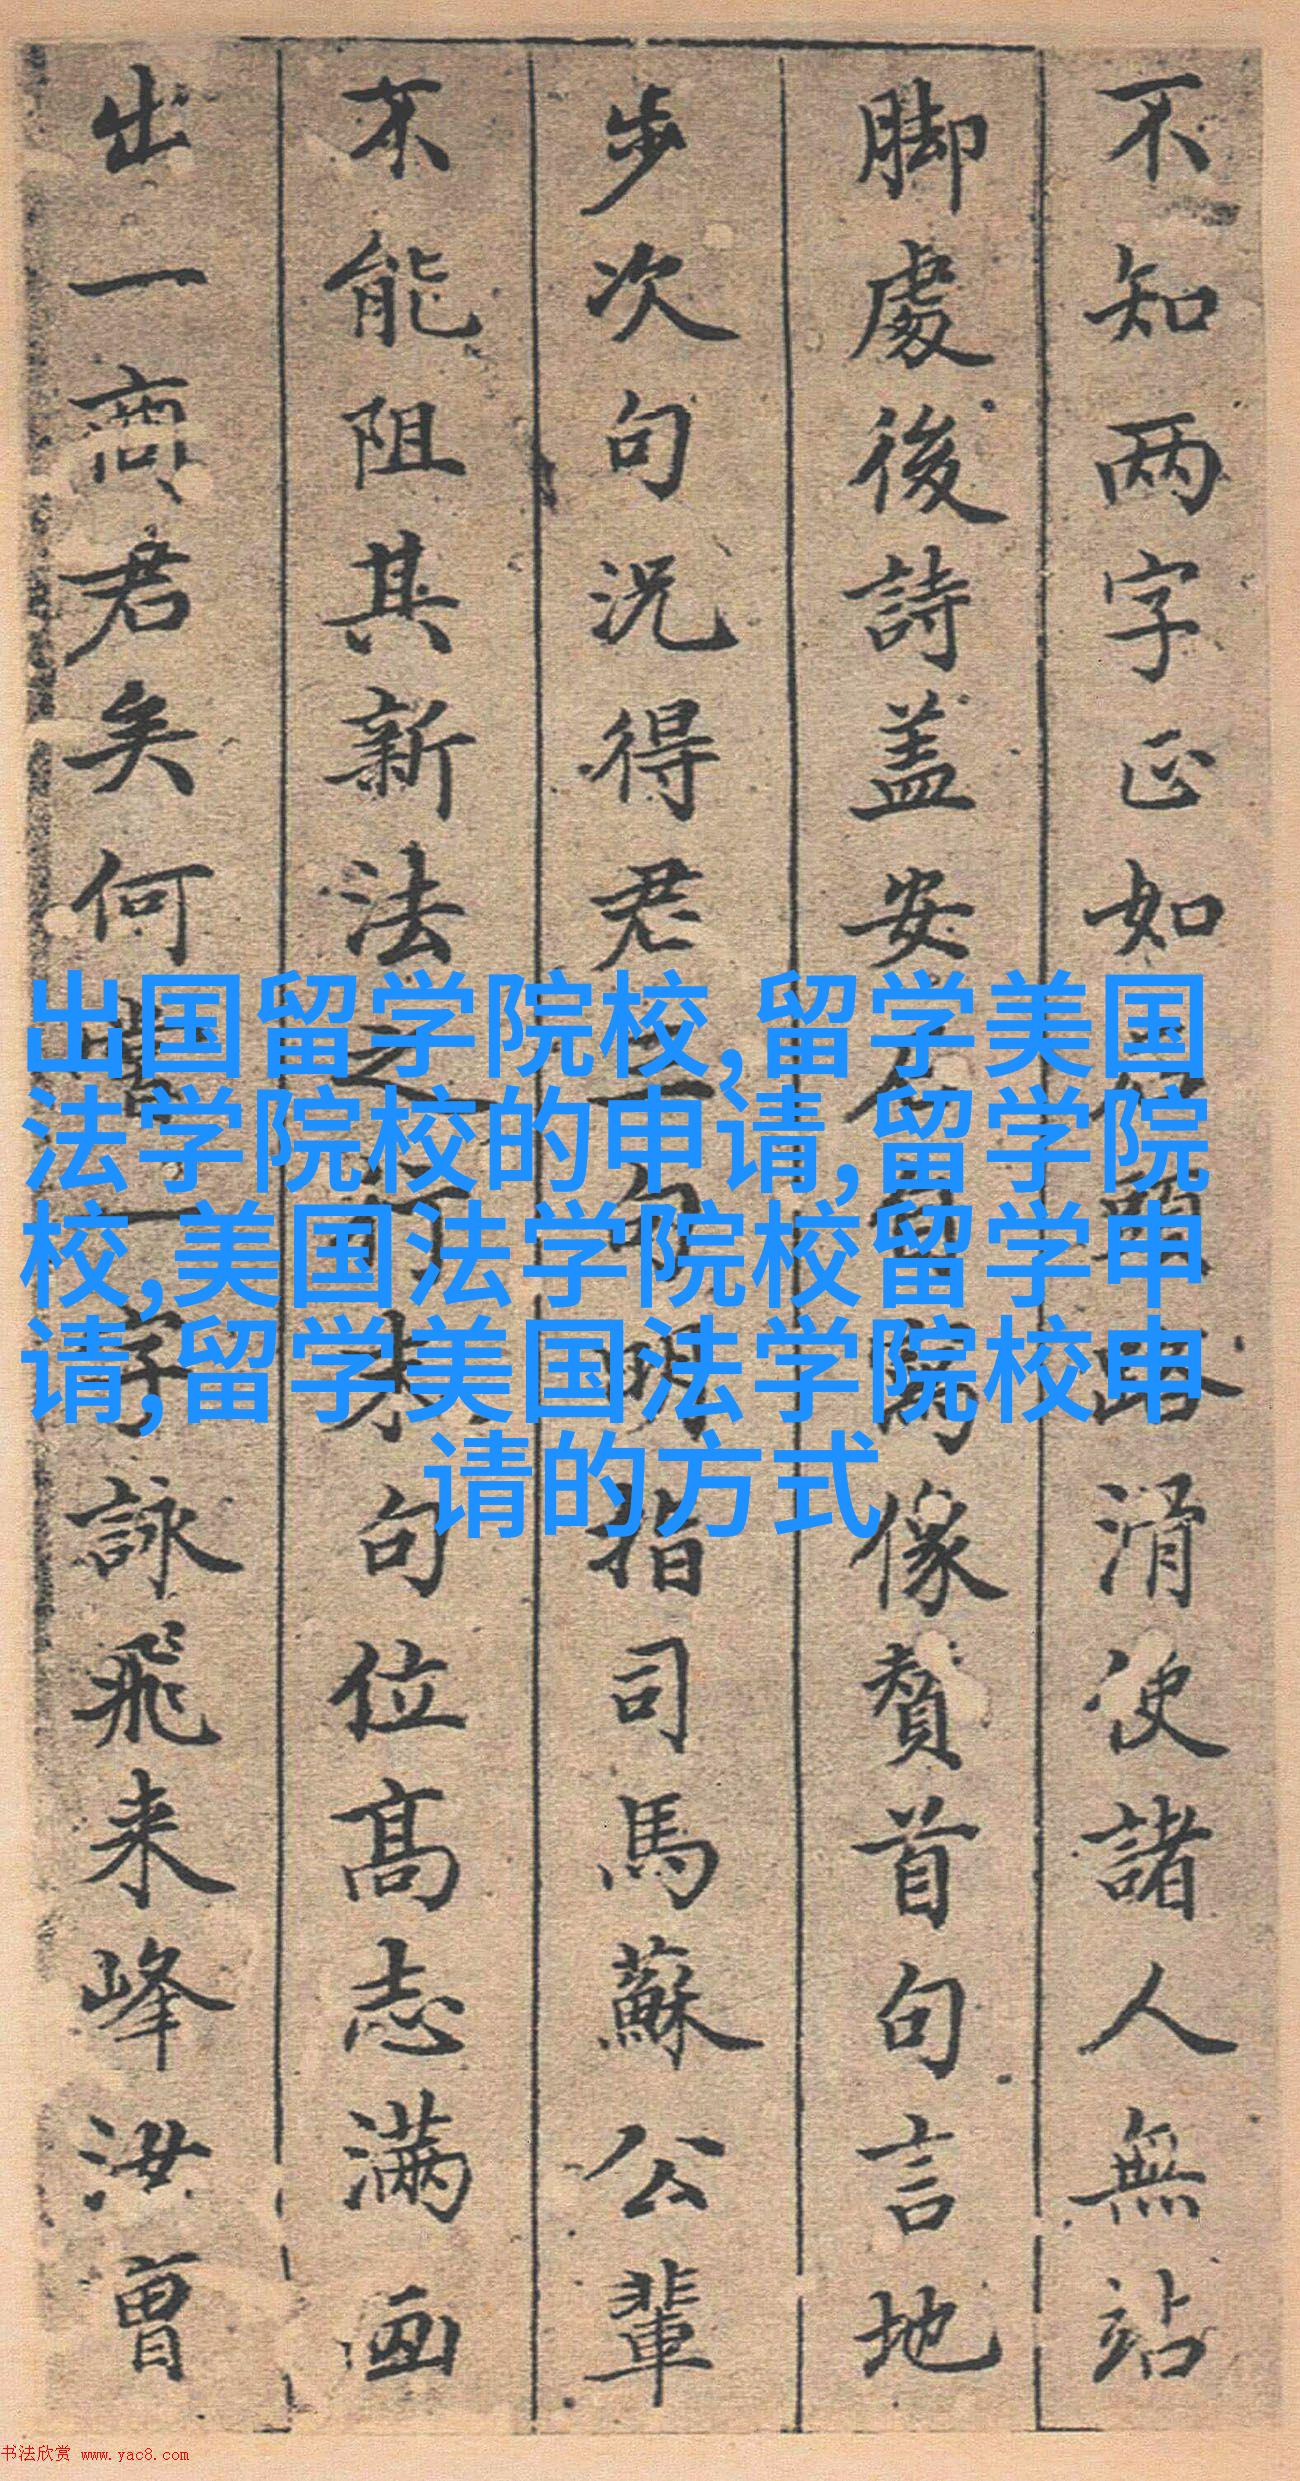 不知两字正如頭路滑使諸人無站
脚處後詩盖安像賛首句言地
步次句況得君三句明指司馬蘇公輩
不能阻其新法之行末句位高志满画
出一商君矣何嘗一字詠飛来峰汝曾
出国留学院校,留学美国
法学院校的申请,留学院
校,美国法学院校留学申
请,留学美国法学院校申
请的方式
书法欣赏 www.yac8.com